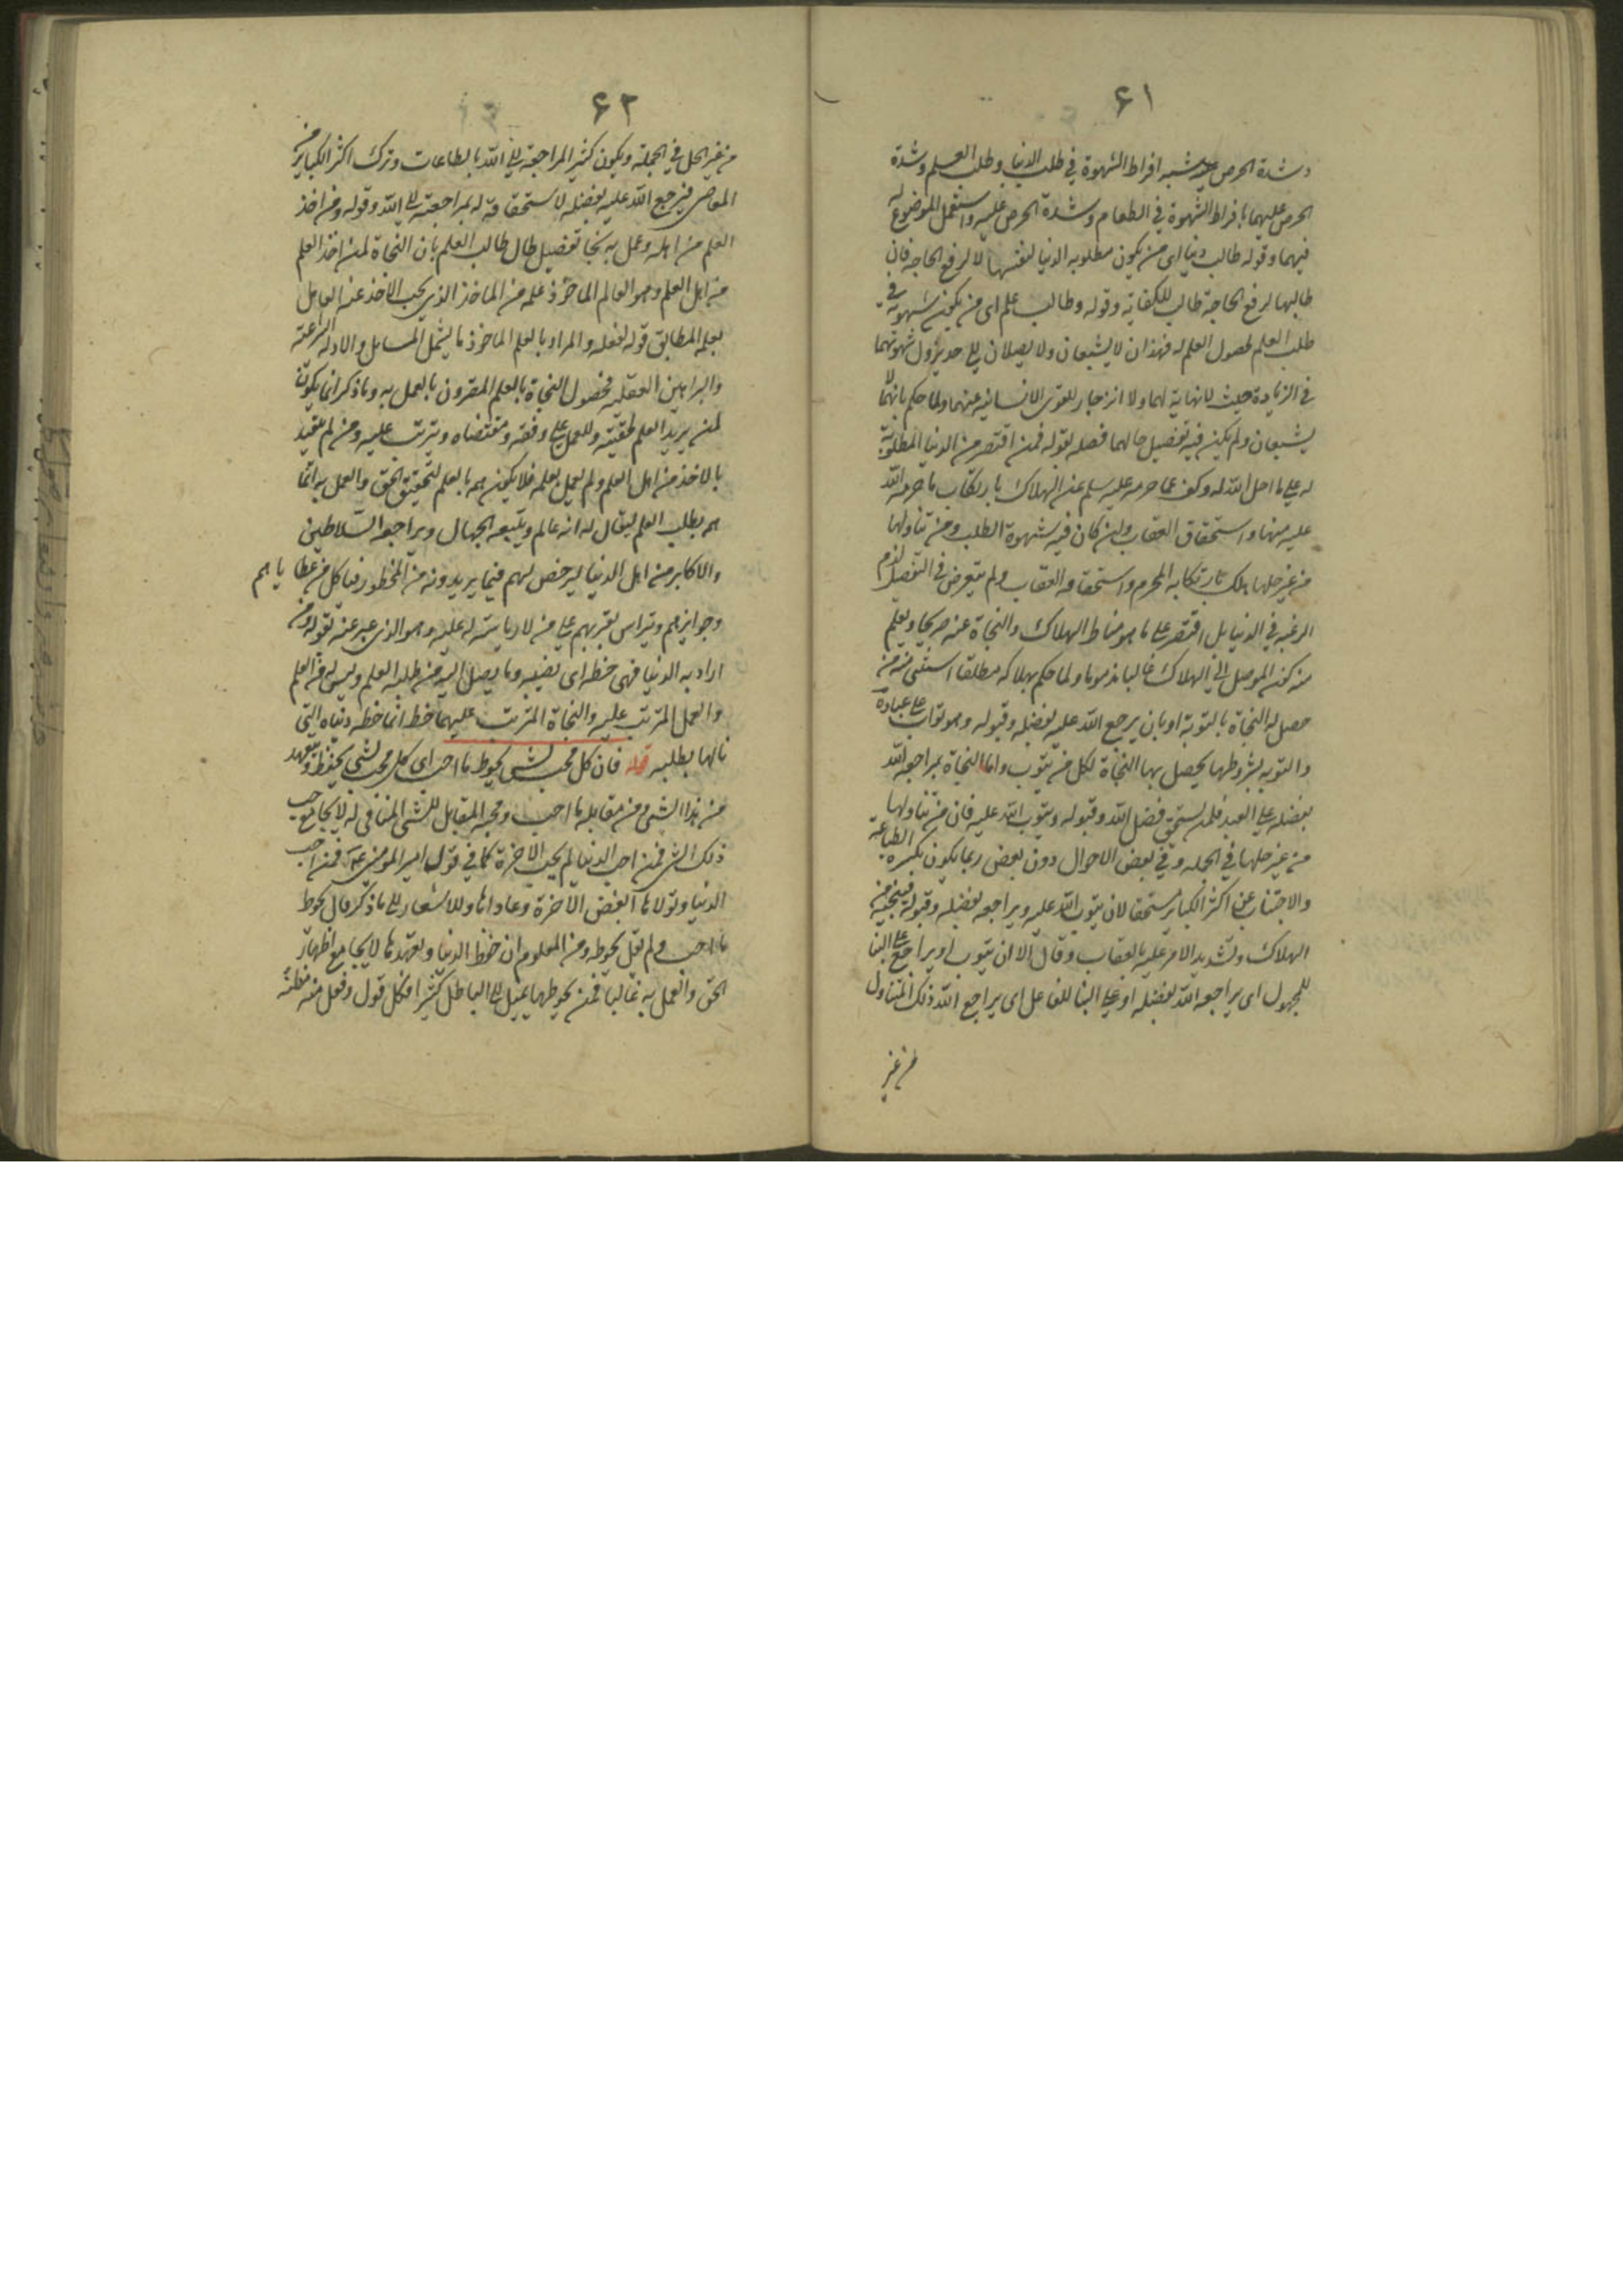 ۶۱
وشدة الحرص عليه شبه افراط الشهوة في طلب الدنيا وطلب العلم وشدة
الحرص عليهما بافراط الشهوة في الطعام وشدة الحرص عليه واستعمل الموضوع له
فيهما وقوله طالب دنيا اى من يكون مطلوبه الدنيا لنفسها لا لرفع الحاجة فان
طالبها لرفع الحاجة طالب للكفاية وقوله وطالب علم اى من يكون شهوته في
طلب العلم لحصول العلم له فهذان لا يشبعان ولا يصلان الى حد يزول شهوتهما
في الزيادة حيث لا نهاية لهما ولا انزجار للقوى الانسانيه عنهما ولما حكم بانهما لا
يشبعان ولم يكن فيه تفصيل حالهما فصله بقوله فمن اقتصر من الدنيا المطلوبة
له على ما احل الله له وكف عما حرمه عليه سلم عن الهلاك بارتكاب ما حرمه الله
عليه منها واستحقاق العقاب ولمن كان فيه شهوة الطلب ومن تناولها
من غير حلها هلك بارتكابه المحرم واستحقاقه العقاب ولم يتعرض في التفصيل لذم
الرغبه في الدنيا بل اقتصر على ما هو مناط الهلاك والنجاة عنه صريحا ويعلم
منه كونه الموصل الى الهلاك غالبا مذموما ولما حكم بهلاكه مطلقا استثنى منه من
حصل له النجاة بالتوبة او بان يرجع الله عليه بفضله وقبوله وهو تواب على عباده
والتوبه بشروطها يحصل بها النجاة لكل من يتوب واما النجاة بمراجعة الله
بفضله على العبد فلمن يستحق فضل الله وقبوله ويتوب الله عليه فان من تناولها
من غير حلها في الجمله وفي بعض الاحوال دون بعض ربما يكون بكثرة الطاعة
والاجتناب عن اكثر الكبائر مستحقا لان يتوب الله عليه ويراجعه بفضله وقبوله فينجيه من
الهلاك ولتشديد الامر عليه بالعقاب وقال الا ان يتوب او يراجع على البنا
للمجهول اى يراجعه الله بفضله او على البنا للفاعل اى يراجع الله ذلك المتناول
من غير
۶۲
من غير الحل في الجملة ويكون كثير المراجعة الى الله بالطاعات وترك اكثر الكبائر من
المعاصى فيرجع الله عليه بفضله لاستحقاقه له بمراجعته الى الله وقوله ومن اخذ
العلم من اهله وعمل به نجا تفصيل لحال طالب العلم بان النجاة لمن اخذ العلم
من اهل العلم وهو العالم الماخوذ علمه من الماخذ الذى يجب الاخذ عنه العامل
بعلمه المطابق قوله لفعله والمراد بالعلم الماخوذ ما يشمل المسائل والادلة الشرعية
والبراهين العقليه فحصول النجاة بالعلم المقرون بالعمل به وما ذكر انما يكون
لمن يريد العلم لحقيته وللعمل على وفقه ومقتضاه ويترتب عليه ومن لم يتقيد
بالاخذ من اهل العلم ولم يعمل بعلمه فلا يكون همه بالعلم لتحقيق الحق والعمل به انما
همه بطلب العلم ليقال له انه عالم ويتبعه الجهال ويراجعه السلاطين
والاكابر من اهل الدنيا ليرخص لهم فيما يريدونه من المحظور فياكل من عطاياهم
وجوايزهم ويتراس بقربهم على من لا رياسة له عليه وهو الذى عبر عنه بقوله ومن
اراد به الدنيا فهى حظه اى نصيبه وما يصل اليه من طلبه العلم وليس له من العلم
والعمل المترتب عليه والنجاة المترتبة عليهما حظ انما حظه دنياه التى
نالها بطلبه قوله فان كل محب لشىء يحوط ما احب اى كل محب لشى يحفظه ويتعهد
من هذا الشى ومن مقابله ما احب ومحبه المقابل للشى المنافى له لا يجامع حب
ذلك الشى فمن احب الدنيا لم يحب الاخرة كما في قول امير المومنين ع فمن احب
الدنيا وتولاها ابغض الاخرة وعاداها وللاشعار الى ما ذكر قال يحوط
ما احب ولم يقل يحوطه ومن المعلوم ان حفظ الدنيا وتعهدها لا يجامع اظهار
الحق والعمل به غالبا فمن يحوطها يميل الى الباطل كثيرا فكل قول وفعل منه مظنة